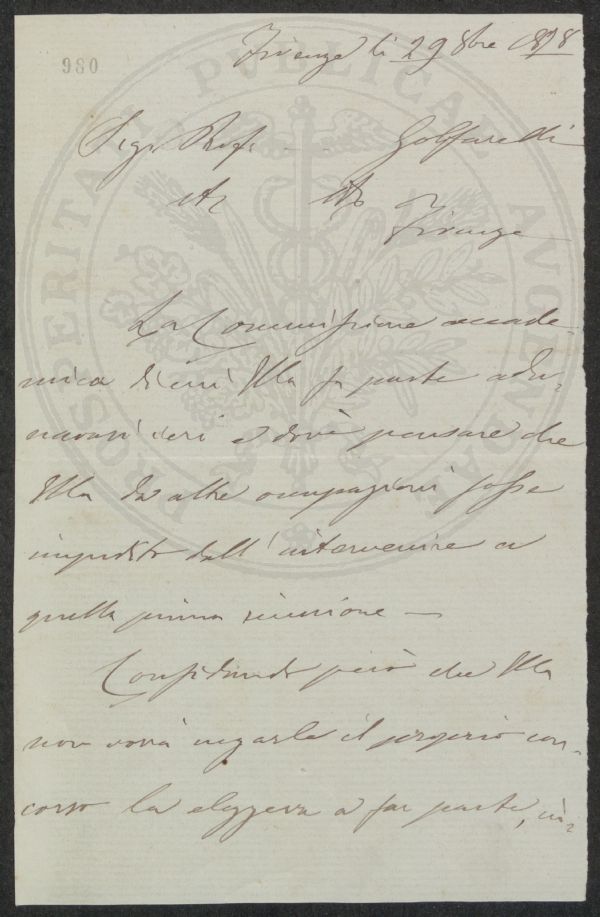 980
Firenze li 29 8bre 1878
Sigr Prof. Golfarelli
Firenze
La Commissione accade-
mica di cui Ella fa parte adu-
navasi ieri e dové pensare che
Ella da altre occupazioni fosse
impedito dall'intervenire a
quella prima riunione —
Confidando però che Ella
non vorrà negarle il proprio con-
corso la eleggeva a far parte, in-
PROSPERITATI PUBLICAE AVGENDAE